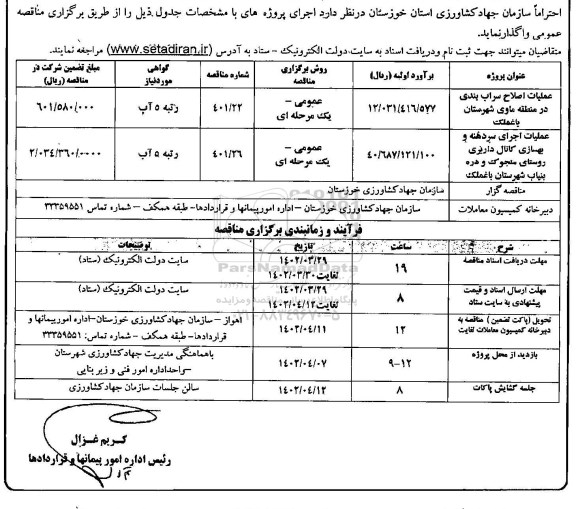 احتراماً سازمان جهادکشاورزی استان خوزستان درنظر دارد اجرای پروژه های با مشخصات جدول ذیل را از طریق برگزاری مناقصه
عمومی واگذارنماید.
متقاضیان میتوانند جهت ثبت نام ودریافت اسناد به سایت دولت الکترونیک - ستاد به آدرس (www.setadiran.ir) مراجعه نمایند.
عنوان پروژه برآورد اولیه (ریال) روش برگزاری مناقصه شماره مناقصه گواهی موردنیاز مبلغ تضمین شرکت در مناقصه (ریال)
عملیات اصلاح سراب بندی در منطقه ماوی شهرستان باغملک ۱۲/۰۳۱/۴۱۶/۵۷۷ عمومی – یک مرحله ای ۴۰۱/۲۲ رتبه ۵ آب ۶۰۱/۵۸۰/۰۰۰
عملیات اجرای سردهنه و بهسازی کانال داربزی روستای منجوک و دره بنیاب شهرستان باغملک ۴۰/۶۸۷/۱۲۱/۱۰۰ عمومی – یک مرحله ای ۴۰۱/۲۶ رتبه ۵ آب ۲/۰۳۴/۳۶۰/۰۰۰۰
مناقصه گزار سازمان جهادکشاورزی خوزستان
دبیرخانه کمیسیون معاملات سازمان جهادکشاورزی خوزستان – اداره امورپیمانها و قراردادها- طبقه همکف – شماره تماس ۳۳۳۵۹۵۵۱
فرآیند و زمانبندی برگزاری مناقصه
شرح ساعت تاریخ توضیحات
مهلت دریافت اسناد مناقصه ۱۹ ۱۴۰۲/۰۳/۲۹ لغایت ۱۴۰۲/۰۳/۳۰ سایت دولت الکترونیک (ستاد)
مهلت ارسال اسناد و قیمت پیشنهادی به سایت ستاد ۸ ۱۴۰۲/۰۳/۲۹ لغایت ۱۴۰۲/۰۴/۱۲ سایت دولت الکترونیک (ستاد)
تحویل (پاکت تضمین) مناقصه به دبیرخانه کمیسیون معاملات لغایت ۱۲ ۱۴۰۲/۰۴/۱۱ اهواز – سازمان جهادکشاورزی خوزستان–اداره امورپیمانها و قراردادها- طبقه همکف – شماره تماس: ۳۳۳۵۹۵۵۱
بازدید از محل پروژه ۹-۱۲ ۱۴۰۲/۰۴/۰۷ باهماهنگی مدیریت جهادکشاورزی شهرستان –واحداداره امور فنی و زیربنایی
جلسه گشایش پاکات ۸ ۱۴۰۲/۰۴/۱۲ سالن جلسات سازمان جهادکشاورزی
کریم غزال
رئیس اداره امور پیمانها و قراردادها
ParsNamadData